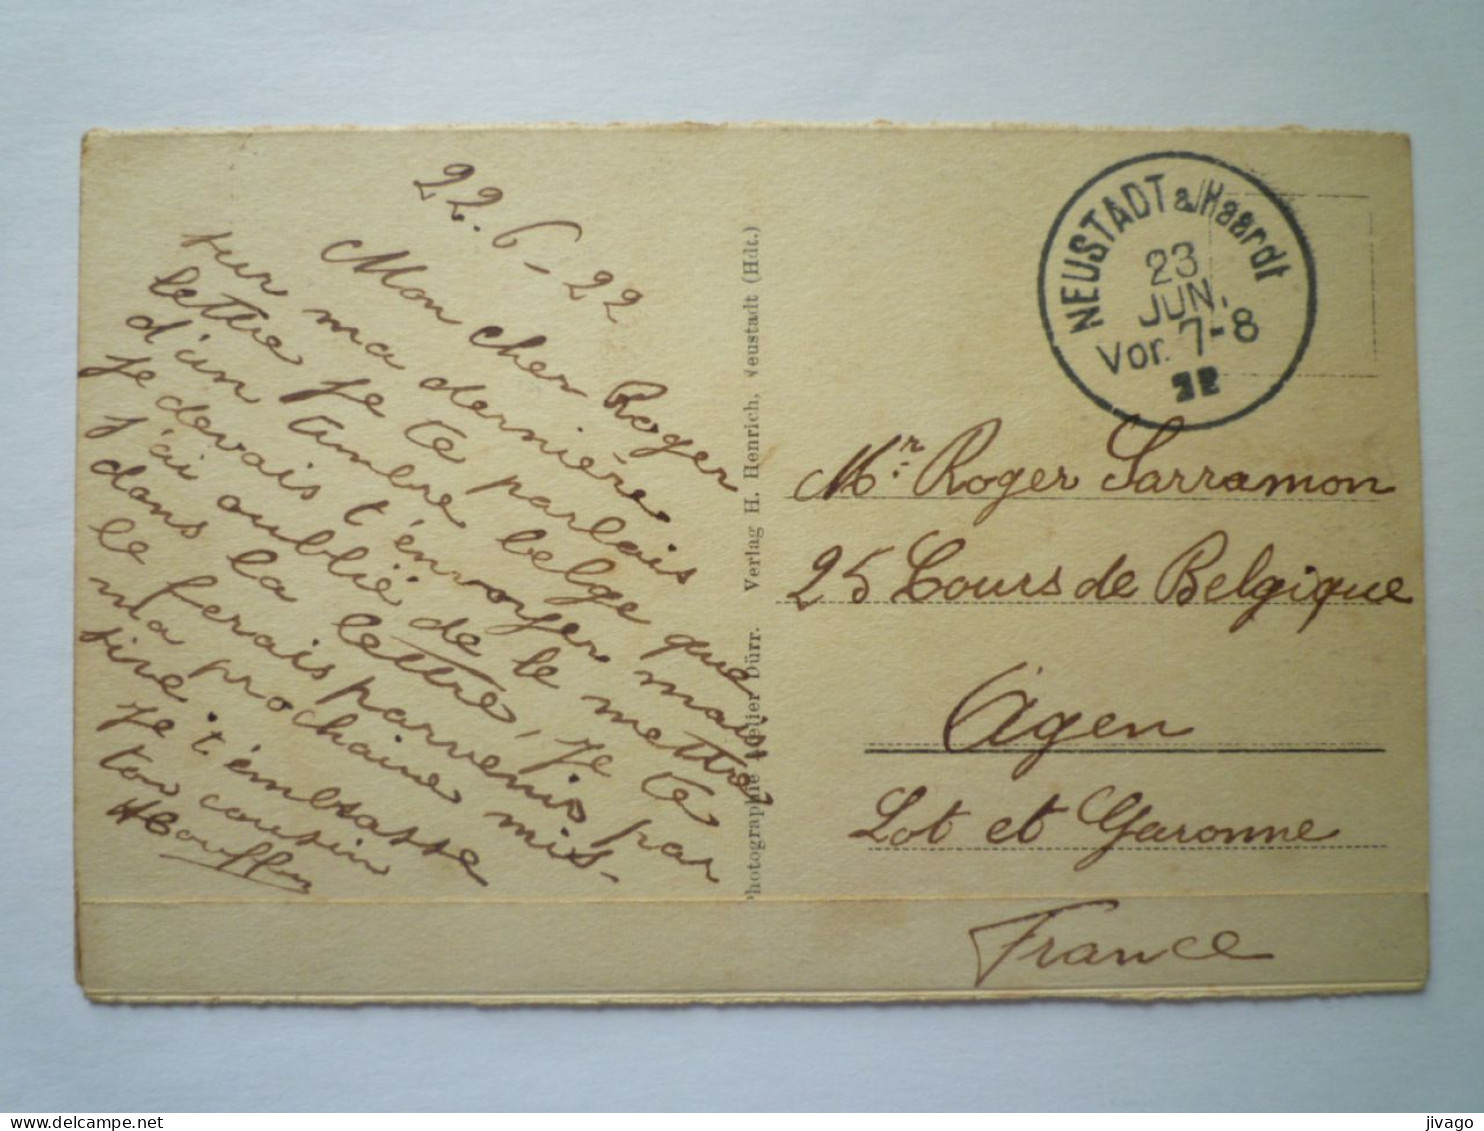 22-6-22
Mon cher Roger
sur ma dernière
lettre je te parlais
d'un timbre belge que
je devais t'envoyer mais
j'ai oublié de le mettre
dans la lettre, je te
le ferais parvenir par
ma prochaine mis-
sive.
je t'embrasse
ton cousin
Photographie Atelier Dürr. Verlag H. Henrich, Neustadt (Hdt.)
NEUSTADT a/Haardt
23
JUN.
Vor. 7-8
22
Mr. Roger Sarramon
25 Cours de Belgique
Agen
Lot et Garonne
France
jivago
www.delcampe.net